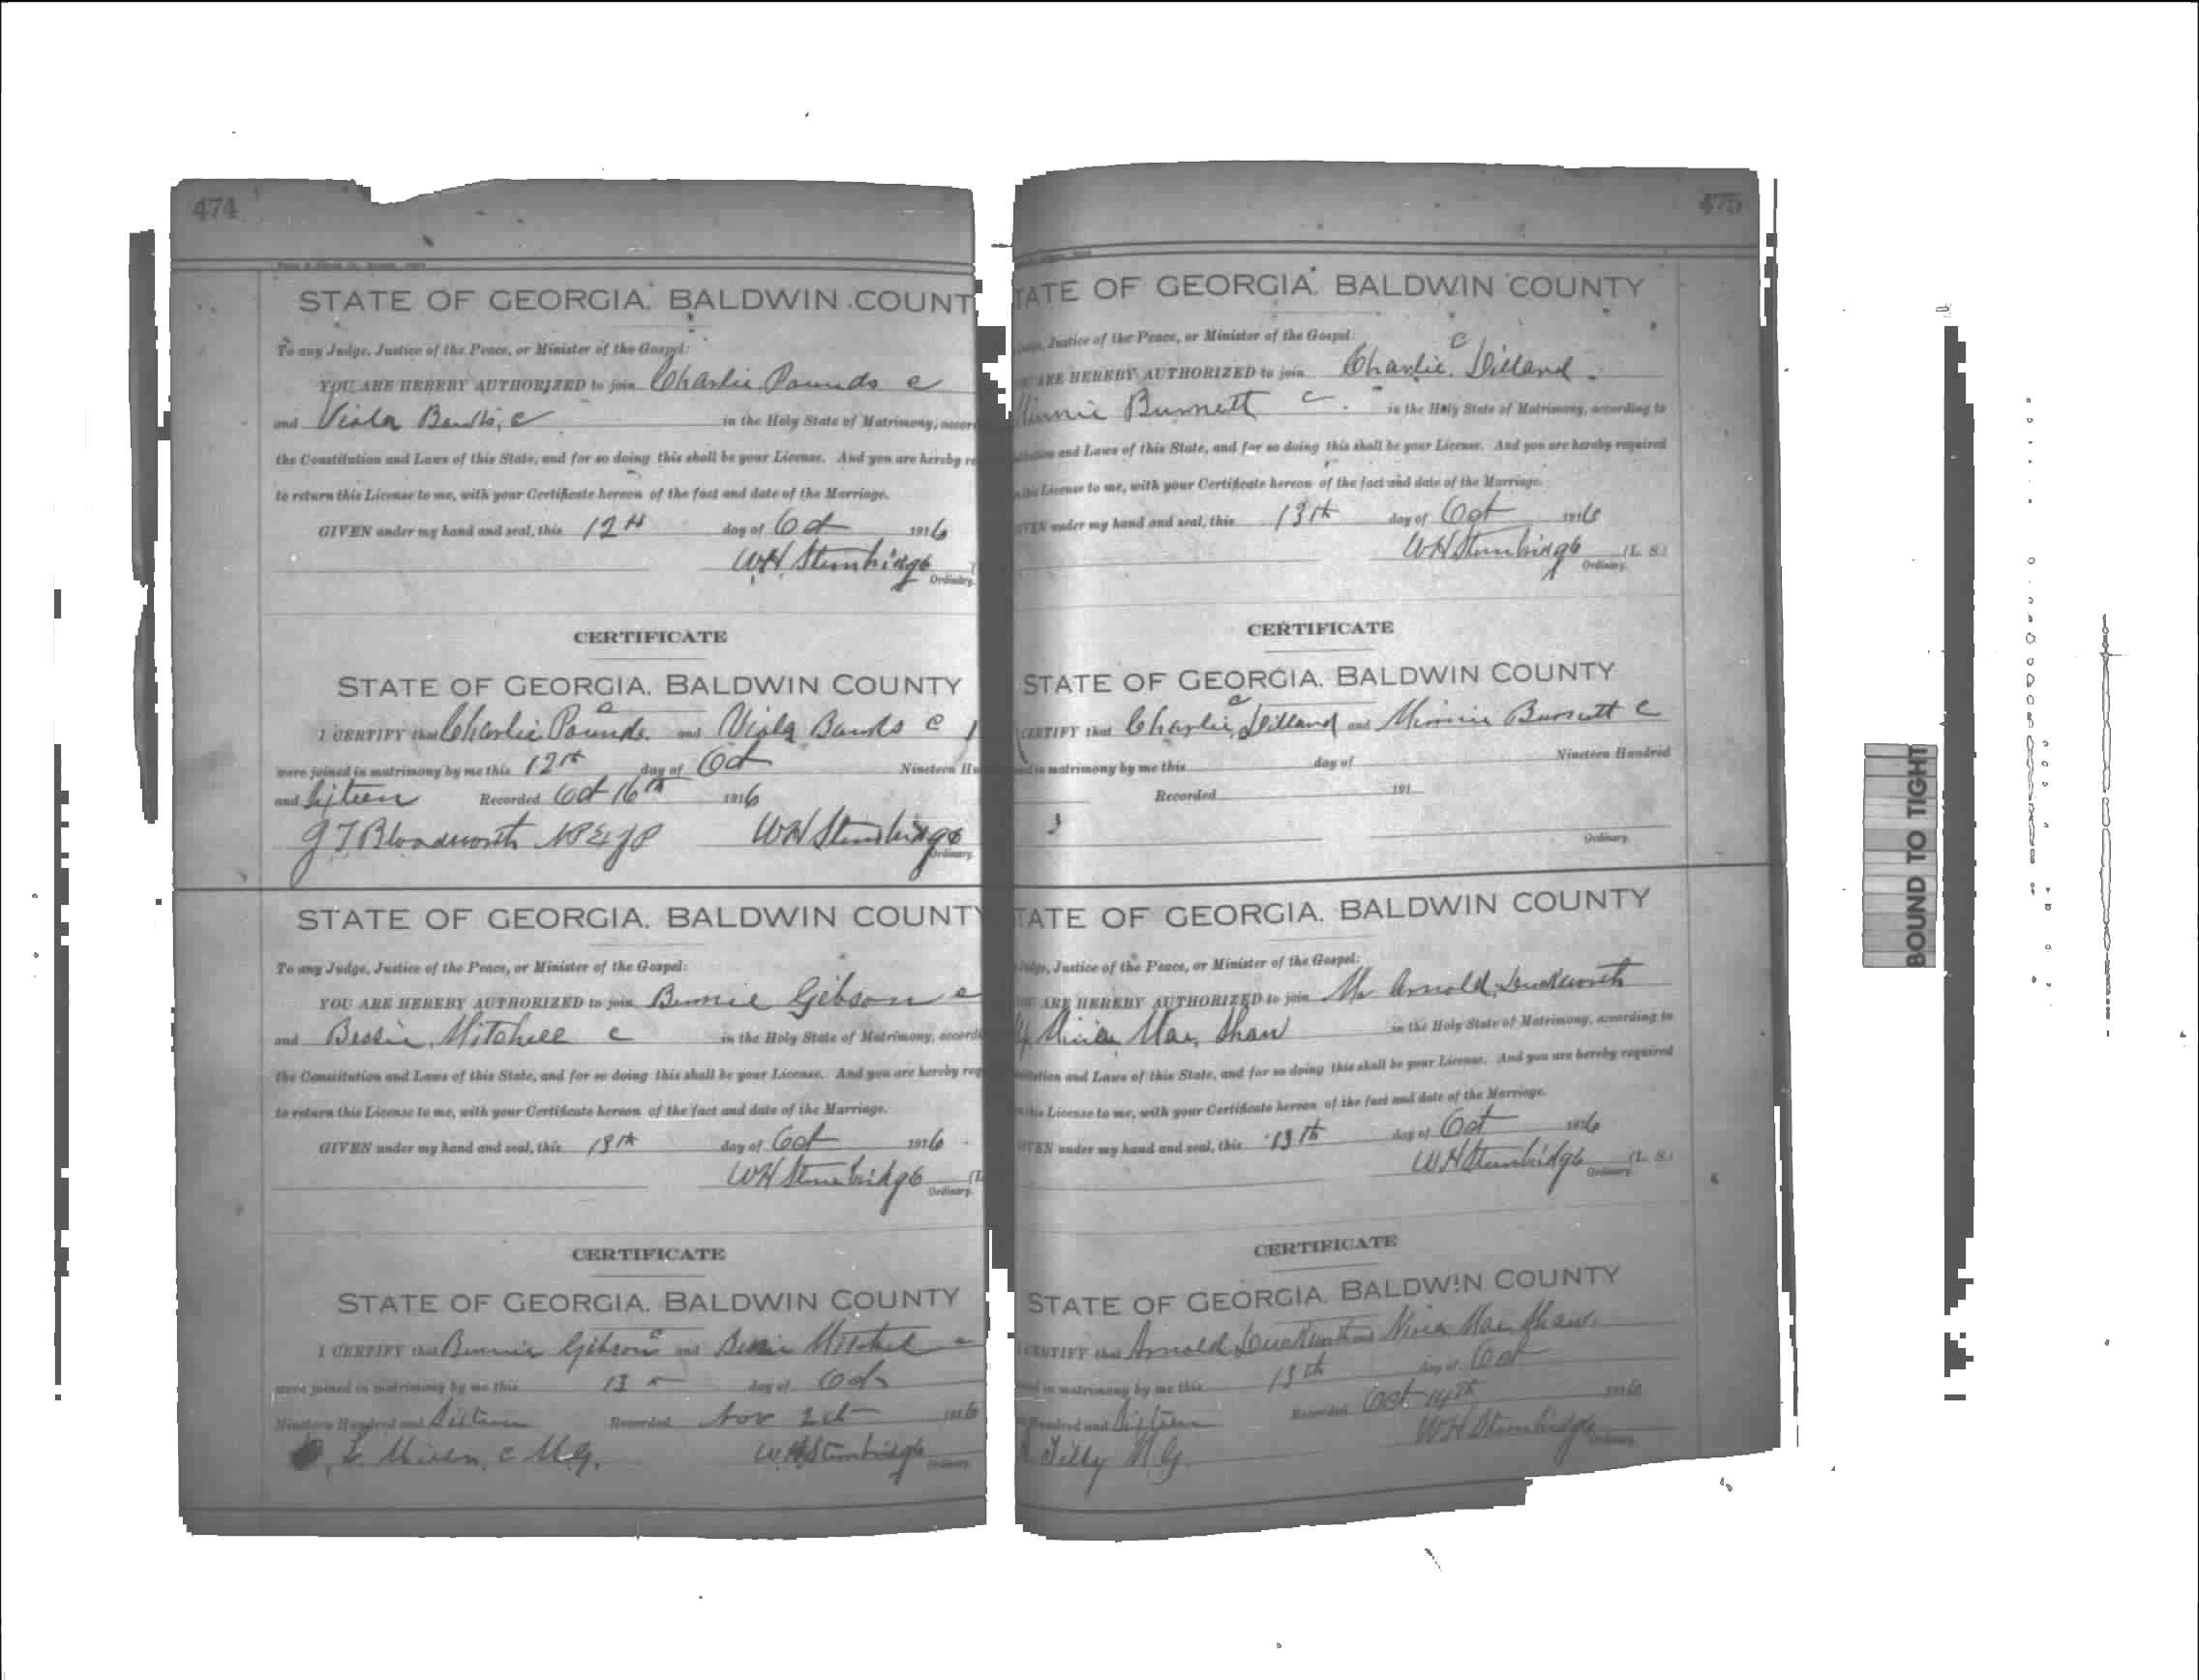 474
STATE OF GEORGIA. BALDWIN COUNT
To any Judge, Justice of the Peace, or Minister of the Gospel:
YOU ARE HEREBY AUTHORIZED to join Charlie Pounds c
and Viola Banks, c in the Holy State of Matrimony, accor
the Constitution and Laws of this State, and for so doing this shall be your License. And you are hereby re
to return this License to me, with your Certificate hereon of the fact and date of the Marriage.
GIVEN under my hand and seal, this 12th day of Oct 1916
WH Stembridge
Ordinary.
CERTIFICATE
STATE OF GEORGIA. BALDWIN COUNTY
I CERTIFY that Charlie Pounds c and Viola Banks c
were joined in matrimony by me this 12th day of Oct Nineteen Hu
and Sixteen Recorded Oct 16th 1916
J T Bloodworth NP & JP WH Stembridge
Ordinary.
STATE OF GEORGIA. BALDWIN COUNTY
To any Judge, Justice of the Peace, or Minister of the Gospel:
YOU ARE HEREBY AUTHORIZED to join Bennie Gibson c
and Bessie Mitchell c in the Holy State of Matrimony, accordi
the Constitution and Laws of this State, and for so doing this shall be your License. And you are hereby req
to return this License to me, with your Certificate hereon of the fact and date of the Marriage.
GIVEN under my hand and seal, this 13th day of Oct 1916
WH Stembridge (L
Ordinary.
CERTIFICATE
STATE OF GEORGIA. BALDWIN COUNTY
I CERTIFY that Bennie Gibson c and Bessie Mitchel c
were joined in matrimony by me this 13th day of Oct
Nineteen Hundred and Sixteen Recorded Nov 1916
c M.G. W.H. Stembridge
Ordinary
475
TATE OF GEORGIA. BALDWIN COUNTY
Justice of the Peace, or Minister of the Gospel:
ARE HEREBY AUTHORIZED to join Charlie c Dilland
Minnie Burnett c. in the Holy State of Matrimony, according to
and Laws of this State, and for so doing this shall be your License. And you are hereby required
this License to me, with your Certificate hereon of the fact and date of the Marriage.
GIVEN under my hand and seal, this 13th day of Oct 1916
WH Stembridge (L. S.)
Ordinary.
CERTIFICATE
STATE OF GEORGIA. BALDWIN COUNTY
CERTIFY that Charlie c Dilland and Minnie Burnett c
in matrimony by me this day of Nineteen Hundred
Recorded 191
Ordinary.
TATE OF GEORGIA. BALDWIN COUNTY
Justice of the Peace, or Minister of the Gospel:
ARE HEREBY AUTHORIZED to join Mr Arnold Duckworth
Mae Shaw in the Holy State of Matrimony, according to
and Laws of this State, and for so doing this shall be your License. And you are hereby required
this License to me, with your Certificate hereon of the fact and date of the Marriage.
GIVEN under my hand and seal, this 13th day of Oct 1916
WH Stembridge (L. S.)
Ordinary
CERTIFICATE
STATE OF GEORGIA. BALDWIN COUNTY
CERTIFY that Arnold Duckworth and Mae Shaw.
in matrimony by me this 13th day of Oct
Hundred and Sixteen Recorded Oct 14th 1916
Tilly M.G. WH Stembridge
Ordinary
BOUND TO TIGHT